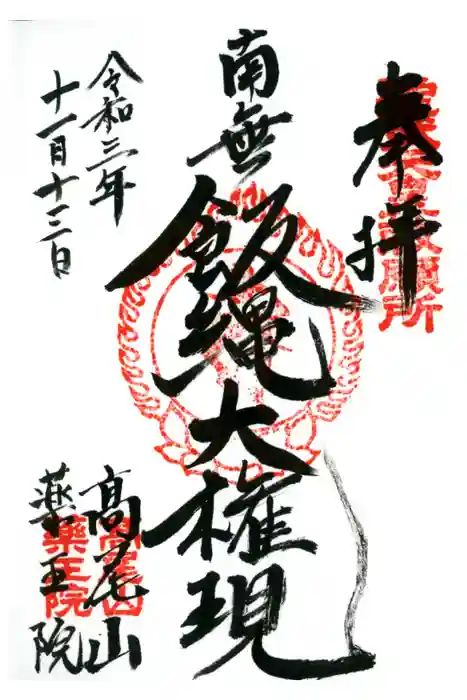 奉拝
南無
飯縄大権現
令和三年
十一月十三日
高尾山
薬王院
高尾山
薬王院